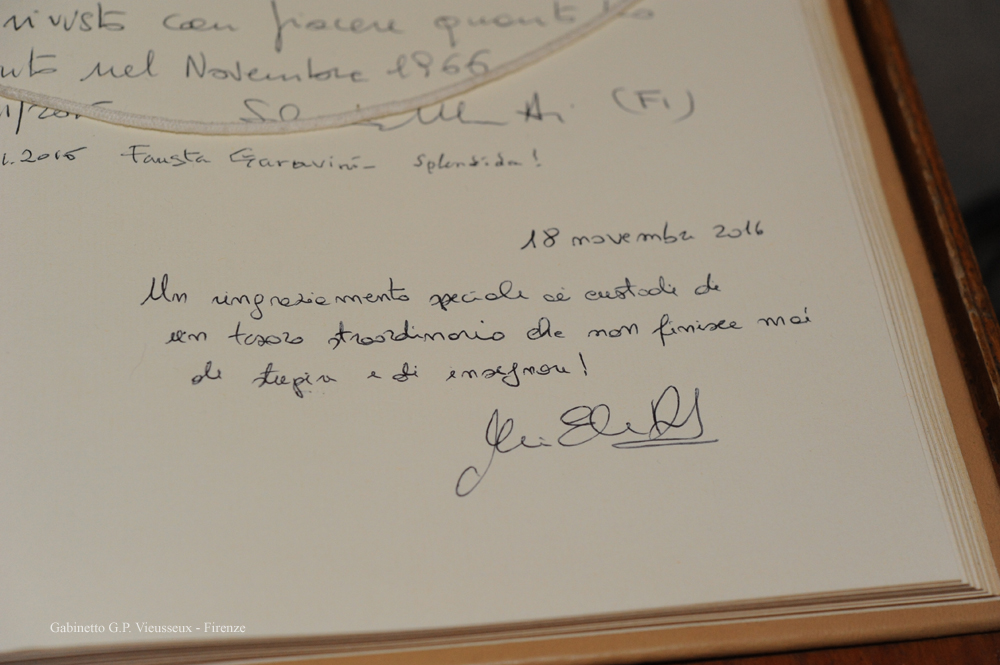 rivisto con piacere quanto ho
nel Novembre 1966
(FI)
.2016 Fausta Garavini - Splendida!
18 novembre 2016
Un ringraziamento speciale ai custodi di
un tesoro straordinario che non finisce mai
di stupire e di insegnare!
Gabinetto G.P. Vieusseux - Firenze